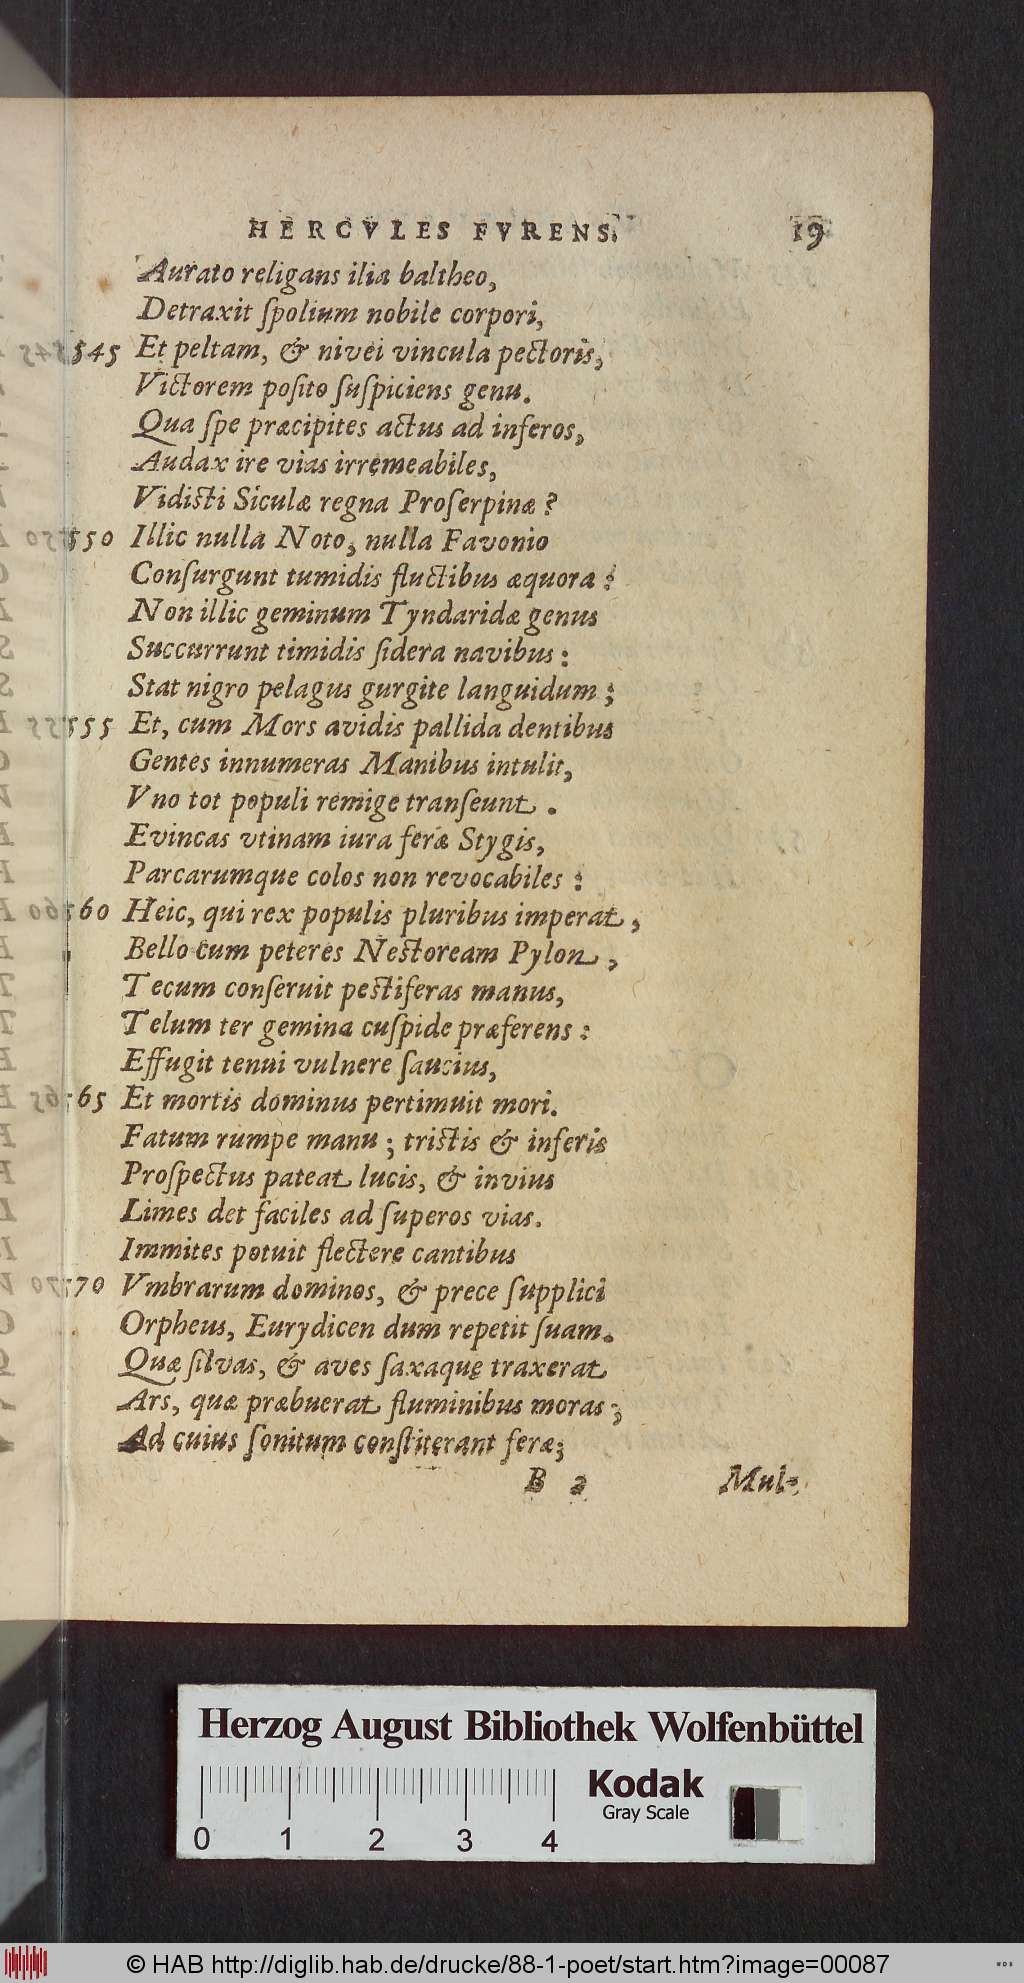 HERCVLES FVRENS. 19
Aurato religans ilia baltheo,
Detraxit ſpolium nobile corpori,
545 Et peltam, & nivei vincula pectoris,
Victorem poſito ſuſpiciens genu.
Qua ſpe præcipites actus ad inferos,
Audax ire vias irremeabiles,
Vidisti Siculæ regna Proſerpinæ?
550 Illic nulla Noto, nulla Favonio
Conſurgunt tumidis fluctibus æquora:
Non illic geminum Tyndaridæ genus
Succurrunt timidis ſidera navibus:
Stat nigro pelagus gurgite languidum;
555 Et, cum Mors avidis pallida dentibus
Gentes innumeras Manibus intulit,
Vno tot populi remige tranſeunt.
Evincas vtinam iura feræ Stygis,
Parcarumque colos non revocabiles:
560 Heic, qui rex populis pluribus imperat,
Bello cum peteres Nestoream Pylon,
Tecum conſeruit pestiferas manus,
Telum ter gemina cuſpide præferens:
Effugit tenui vulnere ſaucius,
565 Et mortis dominus pertimuit mori.
Fatum rumpe manu; tristis & inferis
Proſpectus pateat lucis, & invius
Limes det faciles ad ſuperos vias.
Immites potuit flectere cantibus
570 Vmbrarum dominos, & prece ſupplici
Orpheus, Eurydicen dum repetit ſuam.
Quæ ſilvas, & aves ſaxaque traxerat
Ars, quæ præbuerat fluminibus moras;
Ad cuius ſonitum conſtiterant feræ;
B 2 Mul-
Herzog August Bibliothek Wolfenbüttel
Kodak
Gray Scale
0 1 2 3 4
© HAB http://diglib.hab.de/drucke/88-1-poet/start.htm?image=00087